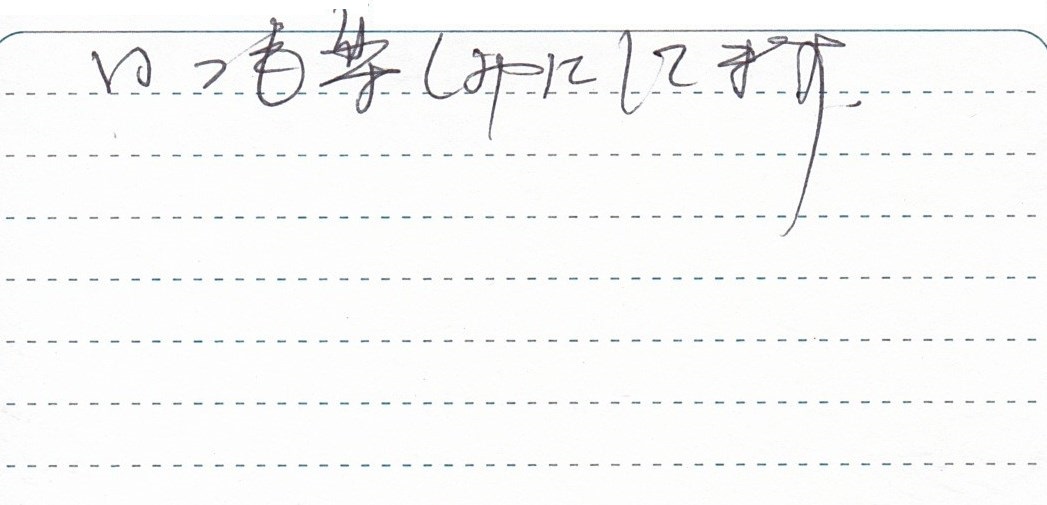 いつも楽しみにしてます。